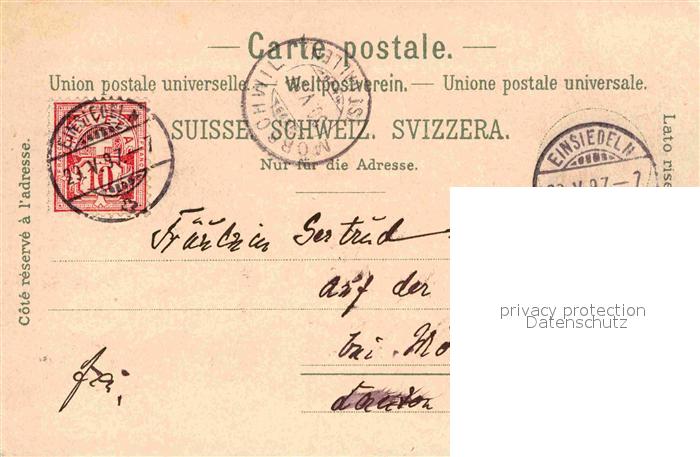 Carte postale.
Union postale universelle. — Weltpostverein. — Unione postale universale.
SUISSE. SCHWEIZ. SVIZZERA.
Nur für die Adresse.
Côté réservé à l'adresse.
Lato rise
EINSIEDELN
29.V.97-7
10
MÖRSCHWIL
EINSIEDELN
V.97-7
Fräulein Gertrud
auf der
bei Mö
frei.
privacy protection
Datenschutz